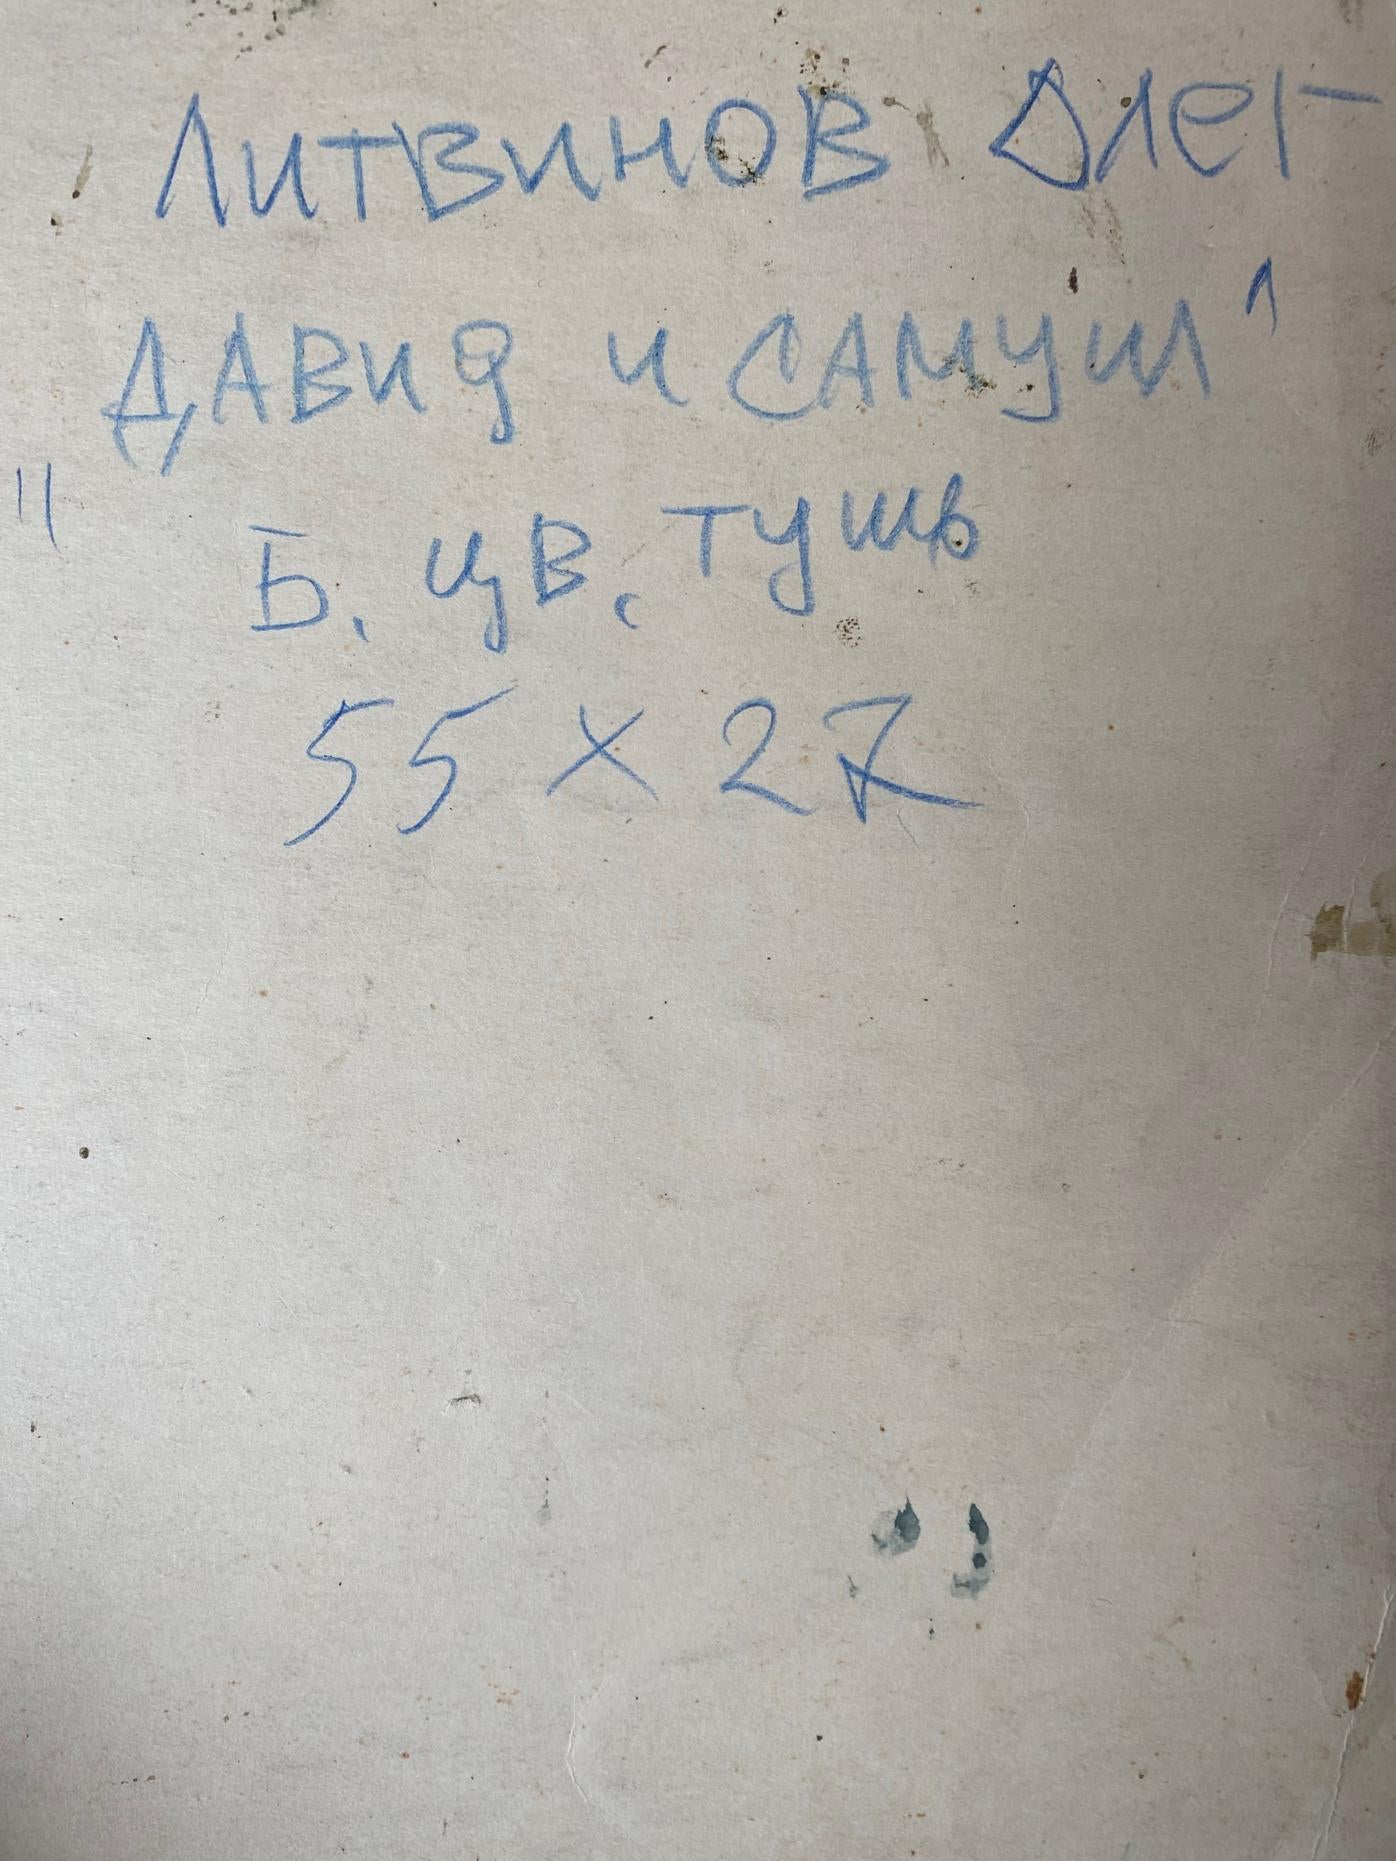 Литвинов Олег
"Давид и Самуил"
Б. цв. тушь
55 x 27